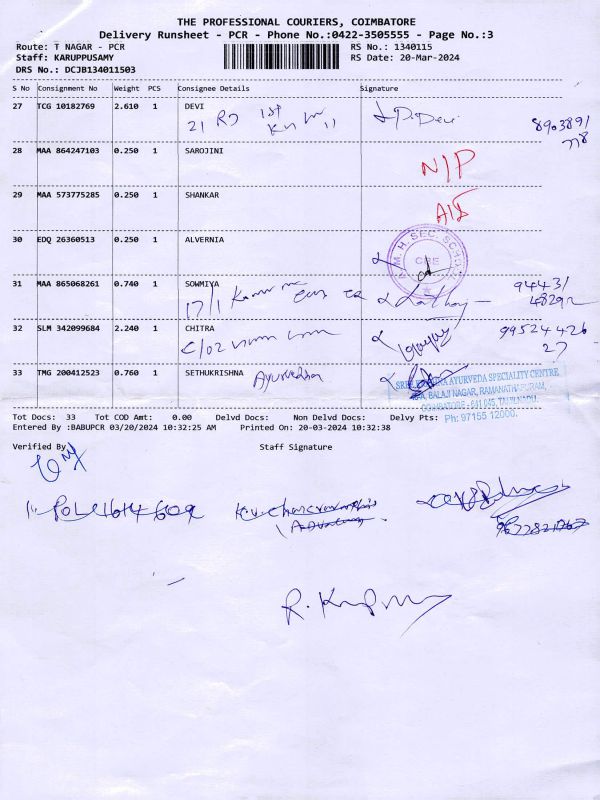 THE PROFESSIONAL COURIERS, COIMBATORE
Delivery Runsheet - PCR - Phone No.:0422-3505555 - Page No.:3
Route: T NAGAR - PCR RS No.: 1340115
Staff: KARUPPUSAMY RS Date: 20-Mar-2024
DRS No.: DCJB134011503
S No Consignment No Weight PCS Consignee Details Signature
27 TCG 10182769 2.610 1 DEVI P.Devi
21 1st
8903891
28 MAA 864247103 0.250 1 SAROJINI N/P
29 MAA 573775285 0.250 1 SHANKAR
30 EDQ 26360513 0.250 1 ALVERNIA
M. H. SEC. SCHOOL
CBE
31 MAA 865068261 0.740 1 SOWMIYA 94431
17/1 48292
32 SLM 342099684 2.240 1 CHITRA 99524 426
C/02 27
33 TMG 200412523 0.760 1 SETHUKRISHNA
Ayurvedha
AYURVEDA SPECIALITY CENTRE
BALAJI NAGAR, RAMANATHAPURAM,
COIMBATORE - 641 045, TAMILNADU.
Ph: 97155 12000.
Tot Docs: 33 Tot COD Amt: 0.00 Delvd Docs: Non Delvd Docs: Delvy Pts:
Entered By :BABUPCR 03/20/2024 10:32:25 AM Printed On: 20-03-2024 10:32:38
Verified By Staff Signature